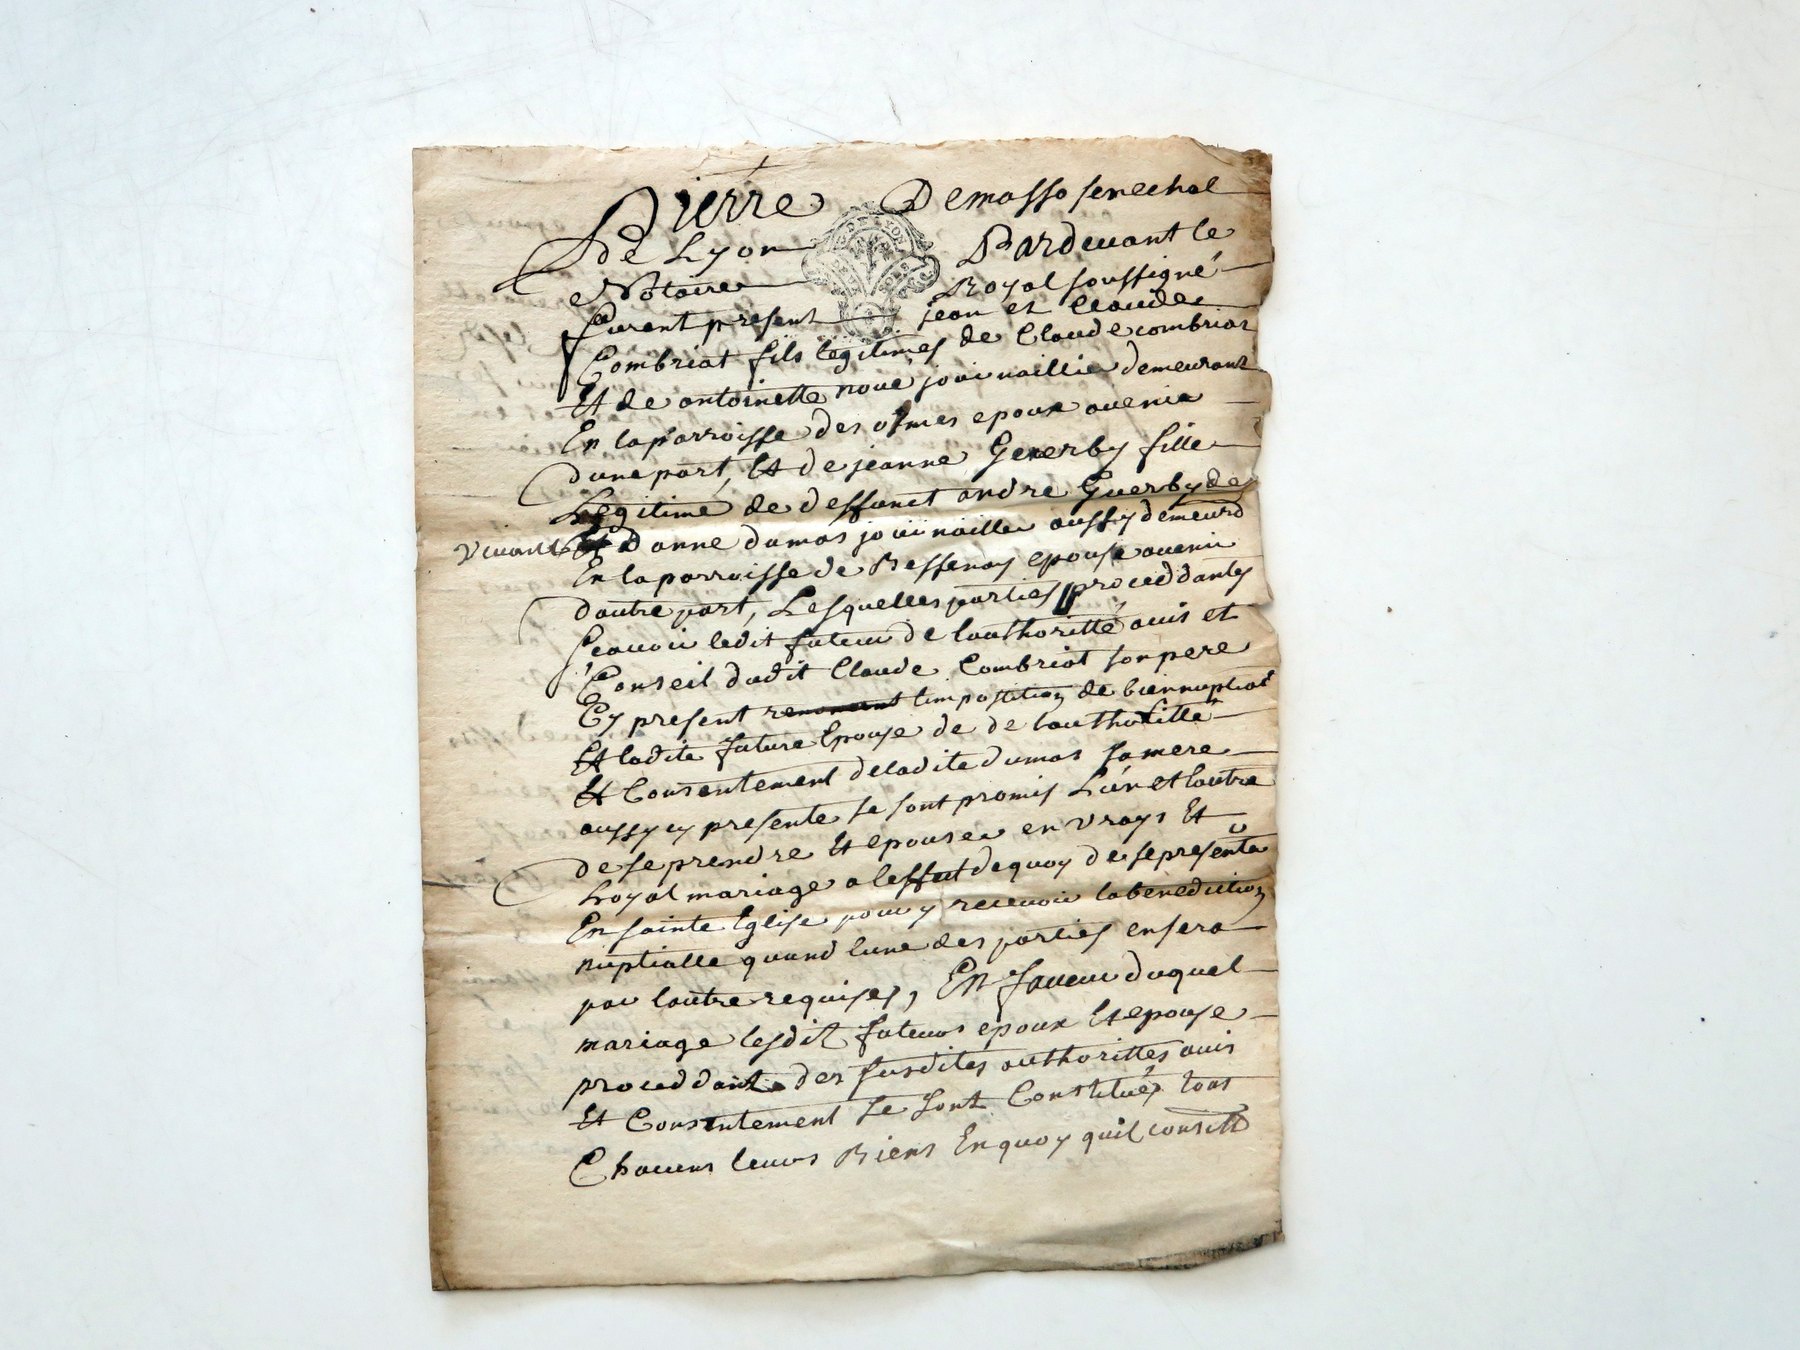 Pierre Demasso senechal
De Lyon Pardevant le
Notaire Royal soussigné
furent present jean et Claude
Combriat fils legitimes de Claude combriat
Et de antoinette noue jouvnaillie demeurant
En la parroisse des olmes epoux avenir
dune part, Et de jeanne Gererby fille
Legitime de deffunct andre Guerby de
vivant Et Danne dumas jouvnaillie aussy demeurd
En la parroisse de Bessenay epouse avenir
dautre part, Lesquelles parties proceddantes
scavoir ledit futeur de lauthoritté avis et
Conseil dudit Claude Combriat son pere
Cy present limposition de bien nuptiat
Et ladite future Epouse de de lauthoritté
Et Consentement deladite dumas sa mere
aussy cy presente se sont promis Lun et lautre
de se prendre Et epouser en vrays Et
Loyal mariage a leffect dequoy de se presenter
En sainte Eglise pour y recevoir la benediction
nuptialle quand lune des parties en sera
par lautre requises, En faveur duquel
mariage lesdit futeurs epoux Et epouse
proceddant des susdites authorittes avis
Et Consentement se sont Constitués tous
Chacuns leurs Biens En quoy quil consitt